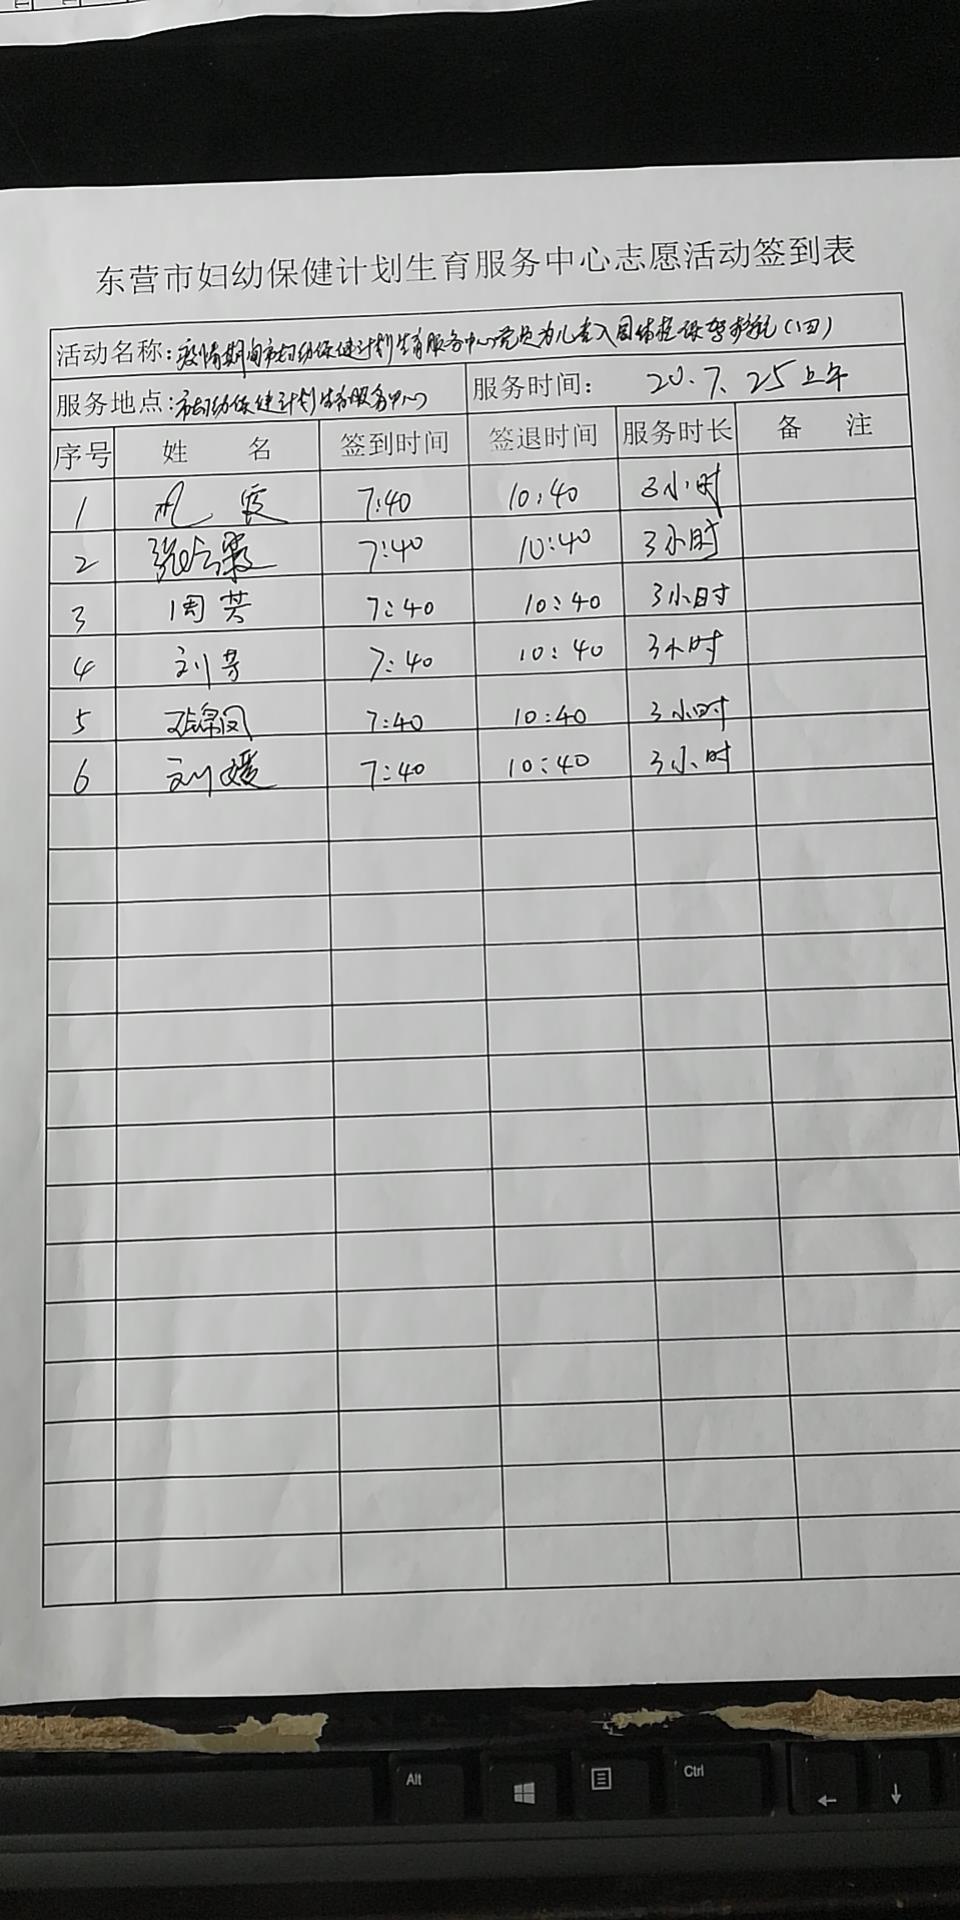 东营市妇幼保健计划生育服务中心志愿活动签到表
活动名称:疫情期间市妇幼保健计划生育服务中心党员为儿童入园体检保驾护航(四)
服务地点:市妇幼保健计划生育服务中心 服务时间: 20.7.25上午
序号 姓 名 签到时间 签退时间 服务时长 备 注
1 7:40 10:40 3小时
2 7:40 10:40 3小时
3 周芸 7:40 10:40 3小时
4 刘芳 7:40 10:40 3小时
5 7:40 10:40 3小时
6 刘媛 7:40 10:40 3小时
Alt
Ctrl